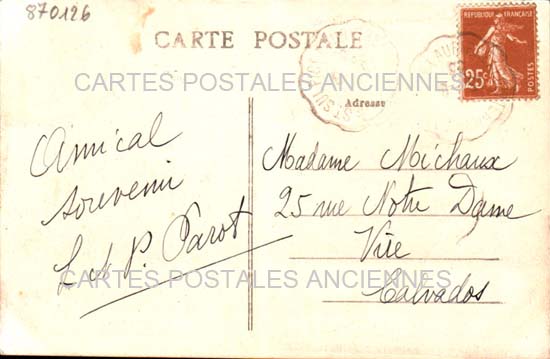 870126
CARTE POSTALE
REPUBLIQUE FRANÇAISE
25c
POSTES
CARTES POSTALES ANCIENNES
Adresse
Amical
souvenir
L et P. Parot
Madame Michaux
25 rue Notre Dame
Vire
Calvados
CARTES POSTALES ANCIENNES